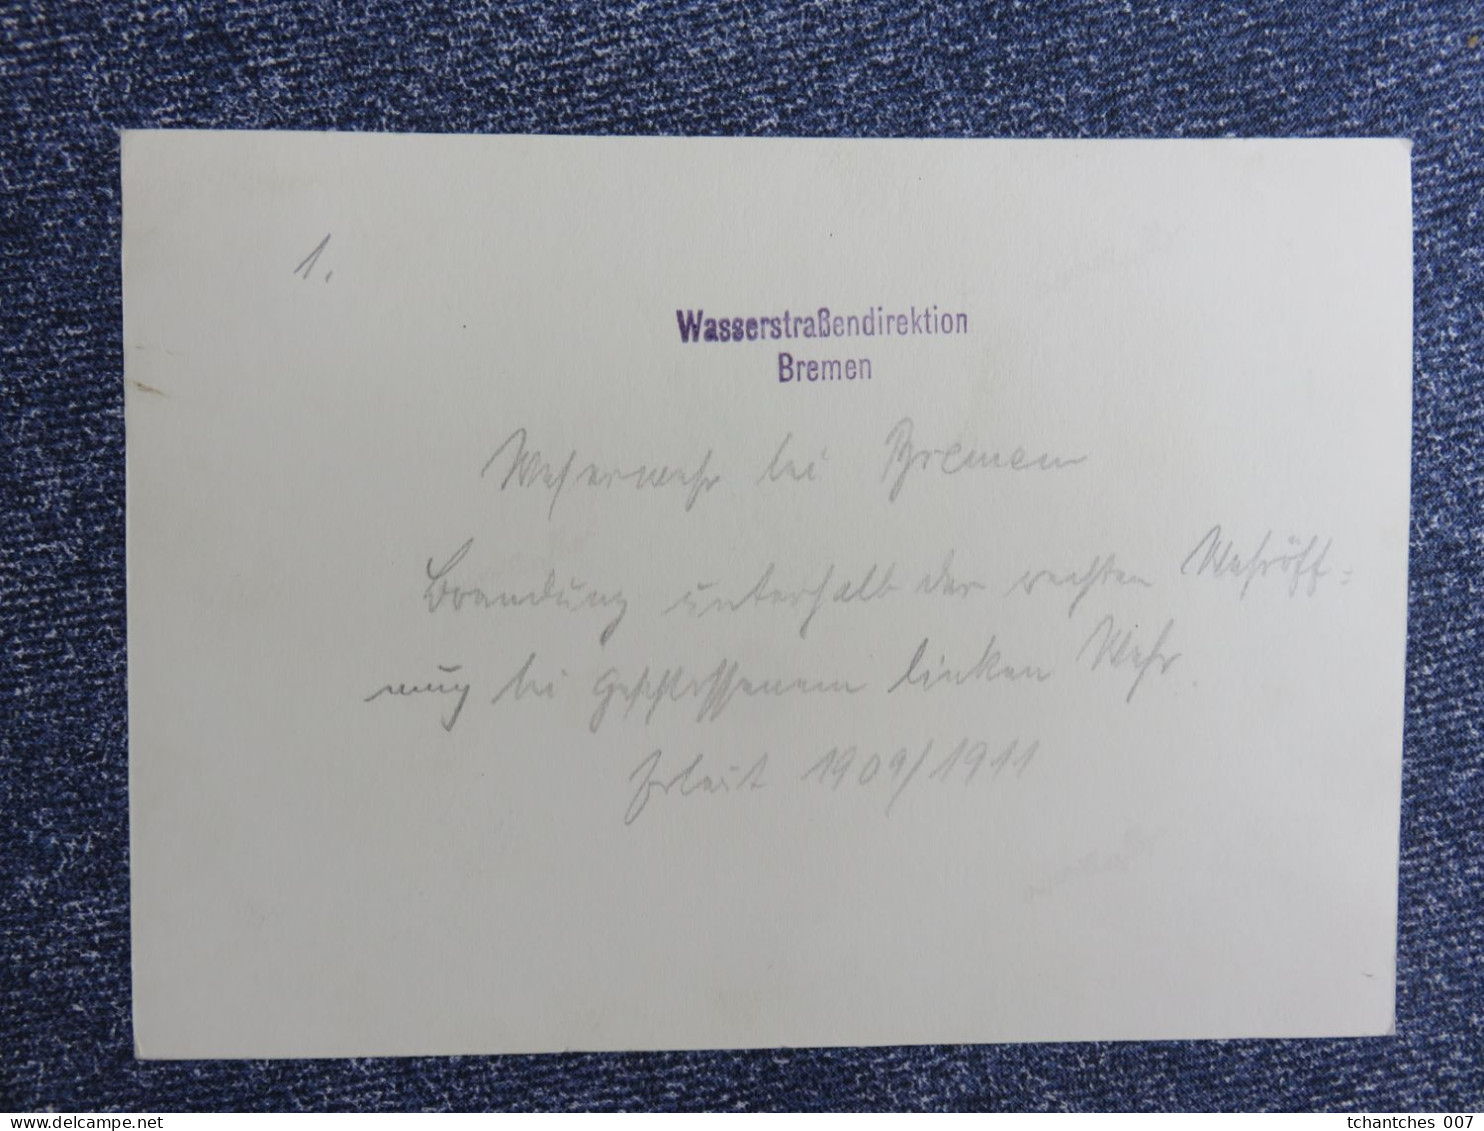 1.
Wasserstraßendirektion
Bremen
Weserwehr bei Bremen
Brandung unterhalb der rechten Wehröff=
nung bei geschlossenem linken Wehr.
Erbaut 1909/1911
delcampe.net
tchantches 007